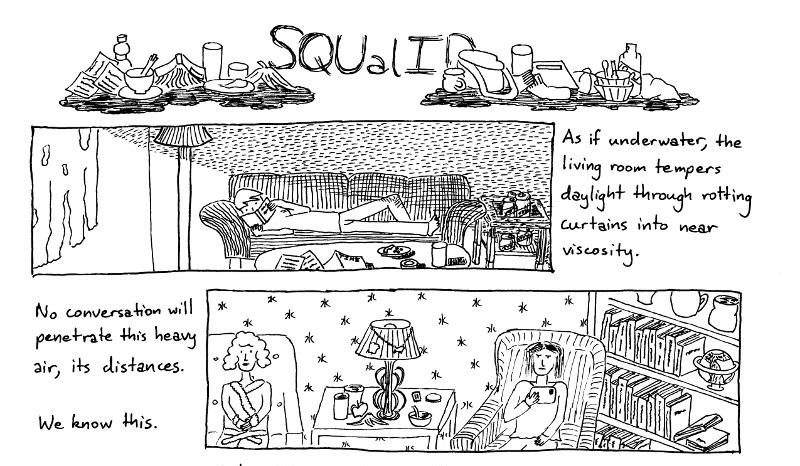 SQUalID
As if underwater, the
living room tempers
daylight through rotting
curtains into near
viscosity.
No conversation will
penetrate this heavy
air, its distances.
We know this.